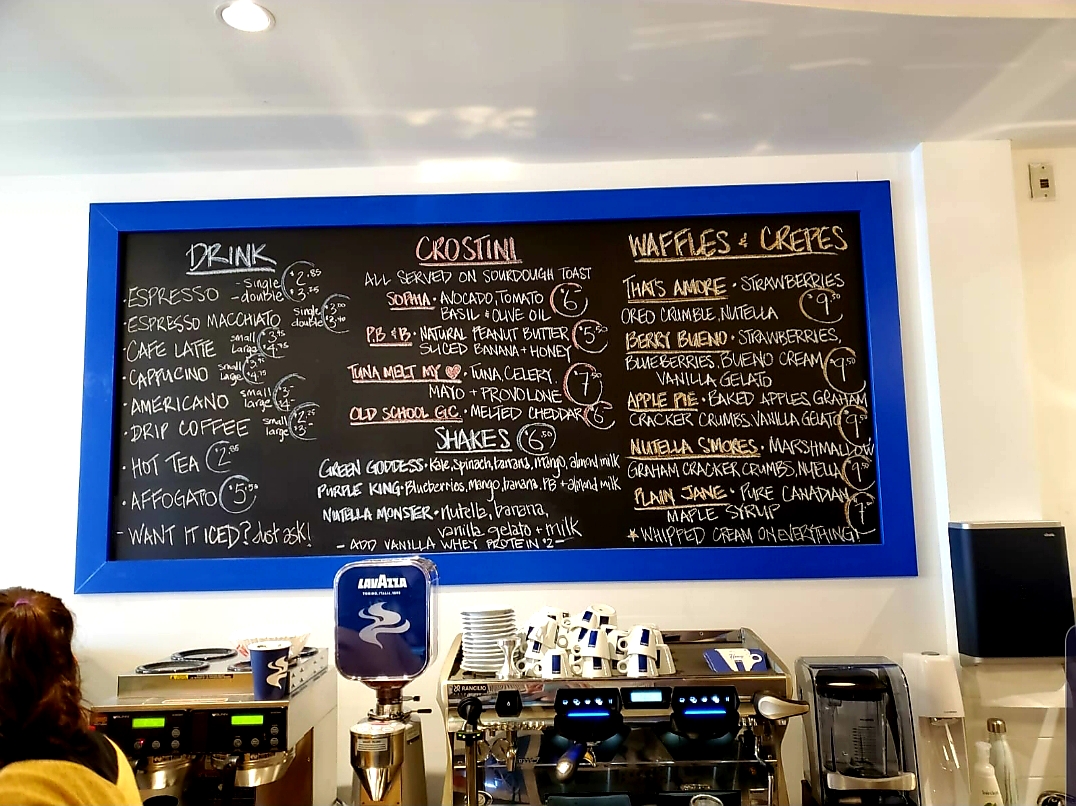 DRINK
· ESPRESSO - single $2.85
- double $3.25
· ESPRESSO MACCHIATO single $3.00
double $3.40
· CAFE LATTE small $3.95
Large $4.75
· CAPPUCINO small $3.95
large $4.75
· AMERICANO small $3-
large $4-
· DRIP COFFEE small $2.25
large $3-
· HOT TEA $2.85
· AFFOGATO $5.50
- WANT IT ICED? Just ask!
CROSTINI
ALL SERVED ON SOURDOUGH TOAST
SOPHIA · AVOCADO, TOMATO $6
BASIL & OLIVE OIL
P.B & B · NATURAL PEANUT BUTTER $5.50
SLICED BANANA + HONEY
TUNA MELT MY ♥ · TUNA, CELERY, $7
MAYO + PROVOLONE
OLD SCHOOL G.C. · MELTED CHEDDAR $6
SHAKES $6.50
GREEN GODDESS · Kale, spinach, banana, mango, almond milk
PURPLE KING · Blueberries, mango, banana, PB + almond milk
NUTELLA MONSTER · nutella, banana,
vanilla gelato + milk
- ADD VANILLA WHEY PROTEIN $2 -
WAFFLES & CREPES
THAT'S AMORE · STRAWBERRIES
OREO CRUMBLE, NUTELLA $9.50
BERRY BUENO · STRAWBERRIES,
BLUEBERRIES, BUENO CREAM $9.50
VANILLA GELATO
APPLE PIE · BAKED APPLES, GRAHAM
CRACKER CRUMBS, VANILLA GELATO $9.50
NUTELLA S'MORES · MARSHMALLOW
GRAHAM CRACKER CRUMBS, NUTELLA $9.50
PLAIN JANE · PURE CANADIAN
MAPLE SYRUP $7
* WHIPPED CREAM ON EVERYTHING! -
LAVAZZA
TORINO, ITALIA, 1895
RANCILIO